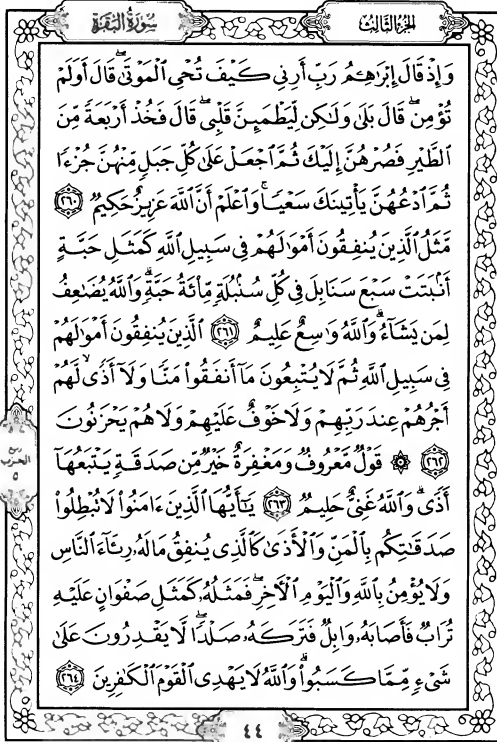 سُورَةُ البَقَرَةِ
الجُزْءُ الثَّالِثُ
وَإِذْ قَالَ إِبْرَٰهِـۧمُ رَبِّ أَرِنِى كَيْفَ تُحْىِ ٱلْمَوْتَىٰ ۖ قَالَ أَوَلَمْ
تُؤْمِن ۖ قَالَ بَلَىٰ وَلَـٰكِن لِّيَطْمَئِنَّ قَلْبِى ۖ قَالَ فَخُذْ أَرْبَعَةً مِّنَ
ٱلطَّيْرِ فَصُرْهُنَّ إِلَيْكَ ثُمَّ ٱجْعَلْ عَلَىٰ كُلِّ جَبَلٍ مِّنْهُنَّ جُزْءًا
ثُمَّ ٱدْعُهُنَّ يَأْتِينَكَ سَعْيًا ۚ وَٱعْلَمْ أَنَّ ٱللَّهَ عَزِيزٌ حَكِيمٌ ٢٦٠
مَّثَلُ ٱلَّذِينَ يُنفِقُونَ أَمْوَٰلَهُمْ فِى سَبِيلِ ٱللَّهِ كَمَثَلِ حَبَّةٍ
أَنۢبَتَتْ سَبْعَ سَنَابِلَ فِى كُلِّ سُنۢبُلَةٍ مِّا۟ئَةُ حَبَّةٍ ۗ وَٱللَّهُ يُضَـٰعِفُ
لِمَن يَشَآءُ ۗ وَٱللَّهُ وَٰسِعٌ عَلِيمٌ ٢٦١ ٱلَّذِينَ يُنفِقُونَ أَمْوَٰلَهُمْ
فِى سَبِيلِ ٱللَّهِ ثُمَّ لَا يُتْبِعُونَ مَآ أَنفَقُوا۟ مَنًّا وَلَآ أَذًى ۙ لَّهُمْ
أَجْرُهُمْ عِندَ رَبِّهِمْ وَلَا خَوْفٌ عَلَيْهِمْ وَلَا هُمْ يَحْزَنُونَ
٢٦٢ ۞ قَوْلٌ مَّعْرُوفٌ وَمَغْفِرَةٌ خَيْرٌ مِّن صَدَقَةٍ يَتْبَعُهَآ
أَذًى ۗ وَٱللَّهُ غَنِىٌّ حَلِيمٌ ٢٦٣ يَـٰٓأَيُّهَا ٱلَّذِينَ ءَامَنُوا۟ لَا تُبْطِلُوا۟
صَدَقَـٰتِكُم بِٱلْمَنِّ وَٱلْأَذَىٰ كَٱلَّذِى يُنفِقُ مَالَهُۥ رِئَآءَ ٱلنَّاسِ
وَلَا يُؤْمِنُ بِٱللَّهِ وَٱلْيَوْمِ ٱلْـَٔاخِرِ ۖ فَمَثَلُهُۥ كَمَثَلِ صَفْوَانٍ عَلَيْهِ
تُرَابٌ فَأَصَابَهُۥ وَابِلٌ فَتَرَكَهُۥ صَلْدًا ۖ لَّا يَقْدِرُونَ عَلَىٰ
شَىْءٍ مِّمَّا كَسَبُوا۟ ۗ وَٱللَّهُ لَا يَهْدِى ٱلْقَوْمَ ٱلْكَـٰفِرِينَ ٢٦٤
الحزب
٥
٤٤